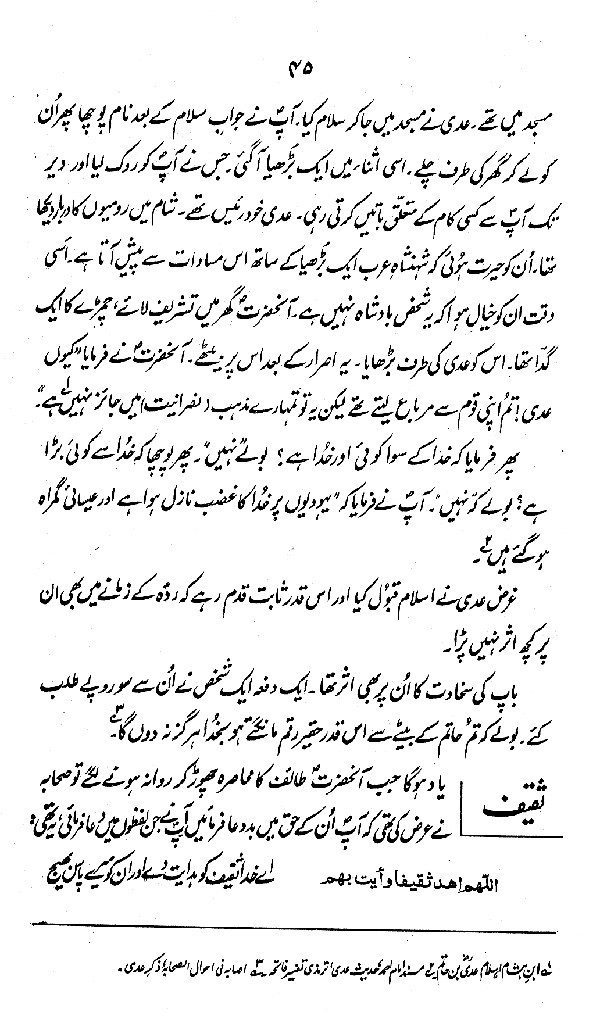 ۴۵
مسجد میں تھے۔ عدی نے مسجد میں جا کر سلام کیا۔ آپؐ نے جواب سلام کے بعد نام پوچھا پھر اُن
کو لے کر گھر کی طرف چلے۔ اسی اثناء میں ایک بڑھیا آ گئی۔ جس نے آپؐ کو روک لیا اور دیر
تک آپؐ سے کسی کام کے متعلق باتیں کرتی رہی۔ عدی خود رئیس تھے۔ شام میں رومیوں کا دربار دیکھا
تھا۔ اُن کو حیرت ہوئی کہ شہنشاہ عرب ایک بڑھیا کے ساتھ اس مساوات سے پیش آتا ہے۔ اُسی
وقت ان کو خیال ہوا کہ یہ شخص بادشاہ نہیں ہے۔ آنحضرتؐ گھر میں تشریف لائے، چمڑے کا ایک
گدا تھا۔ اس کو عدی کی طرف بڑھایا۔ یہ اصرار کے بعد اس پر بیٹھے۔ آنحضرتؐ نے فرمایا "کیوں
عدی! تم اپنی قوم سے مرباع لیتے تھے لیکن یہ تو تمہارے مذہب (نصرانیت) میں جائز نہیں ہے"۔
پھر فرمایا کہ خدا کے سوا کوئی اور خدا ہے؟ بولے "نہیں"۔ پھر پوچھا کہ خدا سے کوئی بڑا
ہے؟ بولے کہ "نہیں"۔ آپؐ نے فرمایا کہ "یہودیوں پر خدا کا غضب نازل ہوا ہے اور عیسائی گمراہ
ہو گئے ہیں"۲۔
غرض عدی نے اسلام قبول کیا اور اس قدر ثابت قدم رہے کہ ردّہ کے زمانے میں بھی ان
پر کچھ اثر نہیں پڑا۔
باپ کی سخاوت کا اُن پر بھی اثر تھا۔ ایک دفعہ ایک شخص نے اُن سے سو روپے طلب
کئے۔ بولے کہ تم حاتم کے بیٹے سے اس قدر حقیر رقم مانگتے ہو بخدا ہرگز نہ دوں گا۳۔
ثقیف
یاد ہوگا جب آنحضرتؐ طائف کا محاصرہ چھوڑ کر روانہ ہونے لگے تو صحابہ
نے عرض کی تھی کہ آپؐ اُن کے حق میں بددعا فرمائیں آپؐ نے جن لفظوں میں دعا فرمائی یہ تھی:
اللهم اهد ثقيفا وأيت بهم اے خدا ثقیف کو ہدایت دے اور ان کو میرے پاس بھیج
۱ ابن ہشام اسلام عدیؓ بن حاتم ۲ مسند امام احمد حدیث عدی، ترمذی تفسیر فاتحہ ۳ اصابہ فی احوال الصحابہ ذکر عدی۔